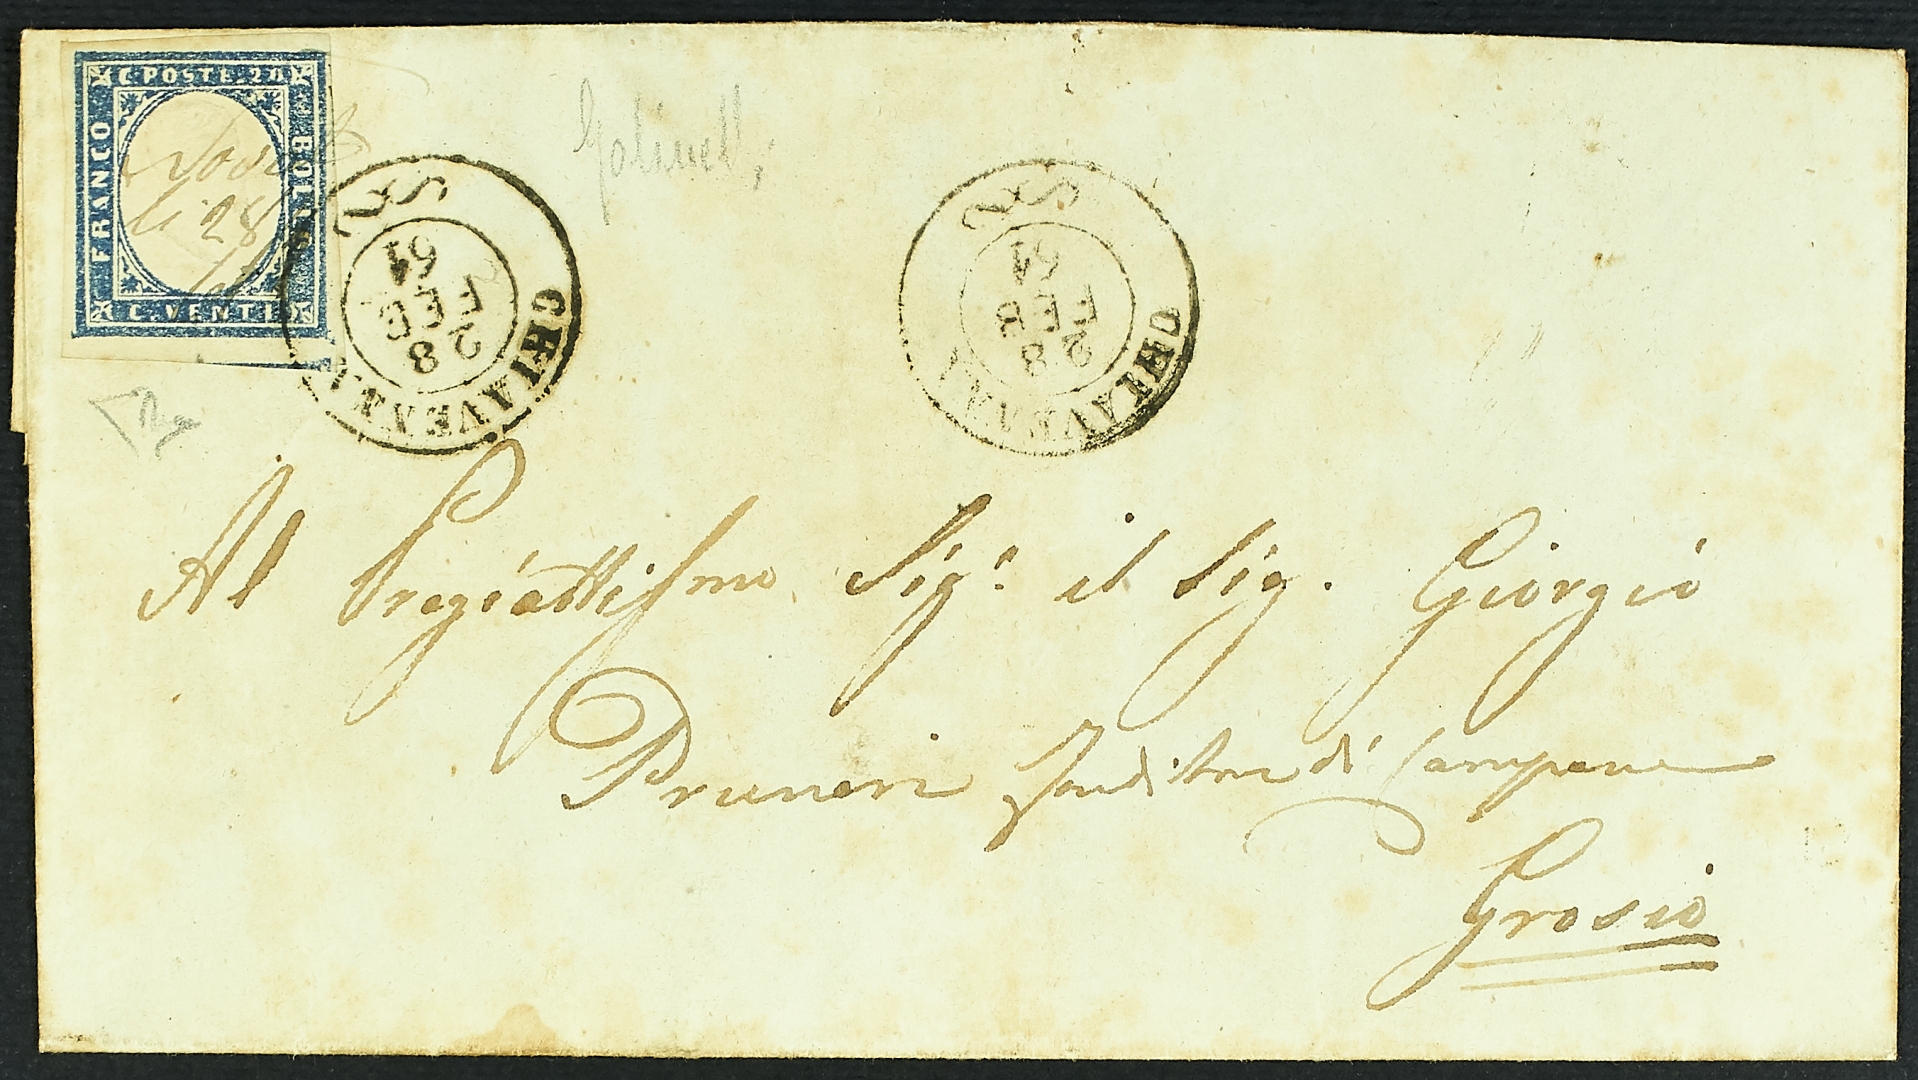 C. POSTE. 20
FRANCO
BOLLO
C. VENTI
li 28
Golinelli
CHIAVENNA
28
FEB
61
CHIAVENNA
28
FEB
61
Al Pregiattissmo Sigr. il Sig. Giorgio
Pruneri Fonditore di Campane
Grosio